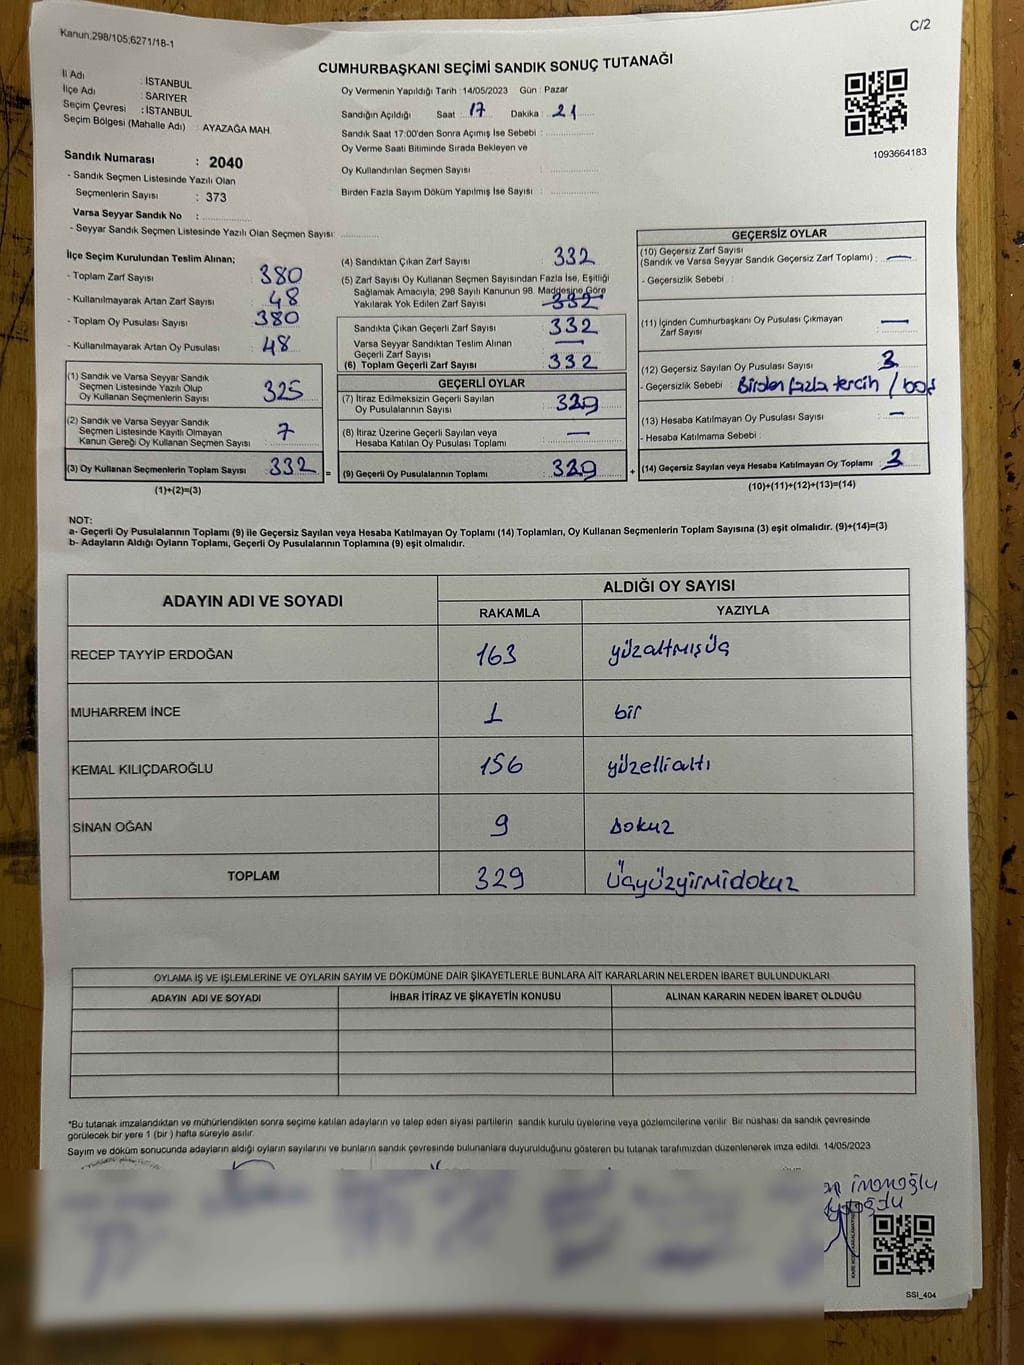 Kanun.298/105;6271/18-1
C/2
CUMHURBAŞKANI SEÇİMİ SANDIK SONUÇ TUTANAĞI
İl Adı : İSTANBUL
İlçe Adı : SARIYER
Seçim Çevresi : İSTANBUL
Seçim Bölgesi (Mahalle Adı) : AYAZAĞA MAH.
Sandık Numarası : 2040
- Sandık Seçmen Listesinde Yazılı Olan
Seçmenlerin Sayısı : 373
Varsa Seyyar Sandık No :
- Seyyar Sandık Seçmen Listesinde Yazılı Olan Seçmen Sayısı:
Oy Vermenin Yapıldığı Tarih : 14/05/2023 Gün : Pazar
Sandığın Açıldığı Saat : 17 Dakika : 21
Sandık Saat 17:00'den Sonra Açımış İse Sebebi :
Oy Verme Saati Bitiminde Sırada Bekleyen ve
Oy Kullandırılan Seçmen Sayısı :
Birden Fazla Sayım Döküm Yapılmış İse Sayısı :
1093664183
İlçe Seçim Kurulundan Teslim Alınan;
- Toplam Zarf Sayısı : 380
- Kullanılmayarak Artan Zarf Sayısı : 48
- Toplam Oy Pusulası Sayısı : 380
- Kullanılmayarak Artan Oy Pusulası : 48
(1) Sandık ve Varsa Seyyar Sandık
Seçmen Listesinde Yazılı Olup
Oy Kullanan Seçmenlerin Sayısı : 325
(2) Sandık ve Varsa Seyyar Sandık
Seçmen Listesinde Kayıtlı Olmayan
Kanun Gereği Oy Kullanan Seçmen Sayısı : 7
(3) Oy Kullanan Seçmenlerin Toplam Sayısı : 332 =
(1)+(2)=(3)
(4) Sandıktan Çıkan Zarf Sayısı : 332
(5) Zarf Sayısı Oy Kullanan Seçmen Sayısından Fazla İse, Eşitliği
Sağlamak Amacıyla, 298 Sayılı Kanunun 98. Maddesine Göre
Yakılarak Yok Edilen Zarf Sayısı : 332
Sandıkta Çıkan Geçerli Zarf Sayısı : 332
Varsa Seyyar Sandıktan Teslim Alınan
Geçerli Zarf Sayısı : —
(6) Toplam Geçerli Zarf Sayısı : 332
GEÇERLİ OYLAR
(7) İtiraz Edilmeksizin Geçerli Sayılan
Oy Pusulalarının Sayısı : 329
(8) İtiraz Üzerine Geçerli Sayılan veya
Hesaba Katılan Oy Pusulası Toplamı : —
(9) Geçerli Oy Pusulalarının Toplamı : 329 +
GEÇERSİZ OYLAR
(10) Geçersiz Zarf Sayısı
(Sandık ve Varsa Seyyar Sandık Geçersiz Zarf Toplamı) : —
- Geçersizlik Sebebi :
(11) İçinden Cumhurbaşkanı Oy Pusulası Çıkmayan
Zarf Sayısı : —
(12) Geçersiz Sayılan Oy Pusulası Sayısı : 3
- Geçersizlik Sebebi : Birden fazla tercih / boş
(13) Hesaba Katılmayan Oy Pusulası Sayısı : —
- Hesaba Katılmama Sebebi :
(14) Geçersiz Sayılan veya Hesaba Katılmayan Oy Toplamı : 3
(10)+(11)+(12)+(13)=(14)
NOT:
a- Geçerli Oy Pusulalarının Toplamı (9) ile Geçersiz Sayılan veya Hesaba Katılmayan Oy Toplamı (14) Toplamları, Oy Kullanan Seçmenlerin Toplam Sayısına (3) eşit olmalıdır. (9)+(14)=(3)
b- Adayların Aldığı Oyların Toplamı, Geçerli Oy Pusulalarının Toplamına (9) eşit olmalıdır.
ADAYIN ADI VE SOYADI
ALDIĞI OY SAYISI
RAKAMLA YAZIYLA
RECEP TAYYİP ERDOĞAN 163 yüzaltmışüç
MUHARREM İNCE 1 bir
KEMAL KILIÇDAROĞLU 156 yüzellialtı
SİNAN OĞAN 9 dokuz
TOPLAM 329 üçyüzyirmidokuz
OYLAMA İŞ VE İŞLEMLERİNE VE OYLARIN SAYIM VE DÖKÜMÜNE DAİR ŞİKAYETLERLE BUNLARA AİT KARARLARIN NELERDEN İBARET BULUNDUKLARI
ADAYIN ADI VE SOYADI İHBAR İTİRAZ VE ŞİKAYETİN KONUSU ALINAN KARARIN NEDEN İBARET OLDUĞU
*Bu tutanak imzalandıktan ve mühürlendikten sonra seçime katılan adayların ve talep eden siyasi partilerin sandık kurulu üyelerine veya gözlemcilerine verilir. Bir nüshası da sandık çevresinde
görülecek bir yere 1 (bir ) hafta süreyle asılır.
Sayım ve döküm sonucunda adayların aldığı oyların sayılarını ve bunların sandık çevresinde bulunanlara duyurulduğunu gösteren bu tutanak tarafımızdan düzenlenerek imza edildi. 14/05/2023
SSI_404